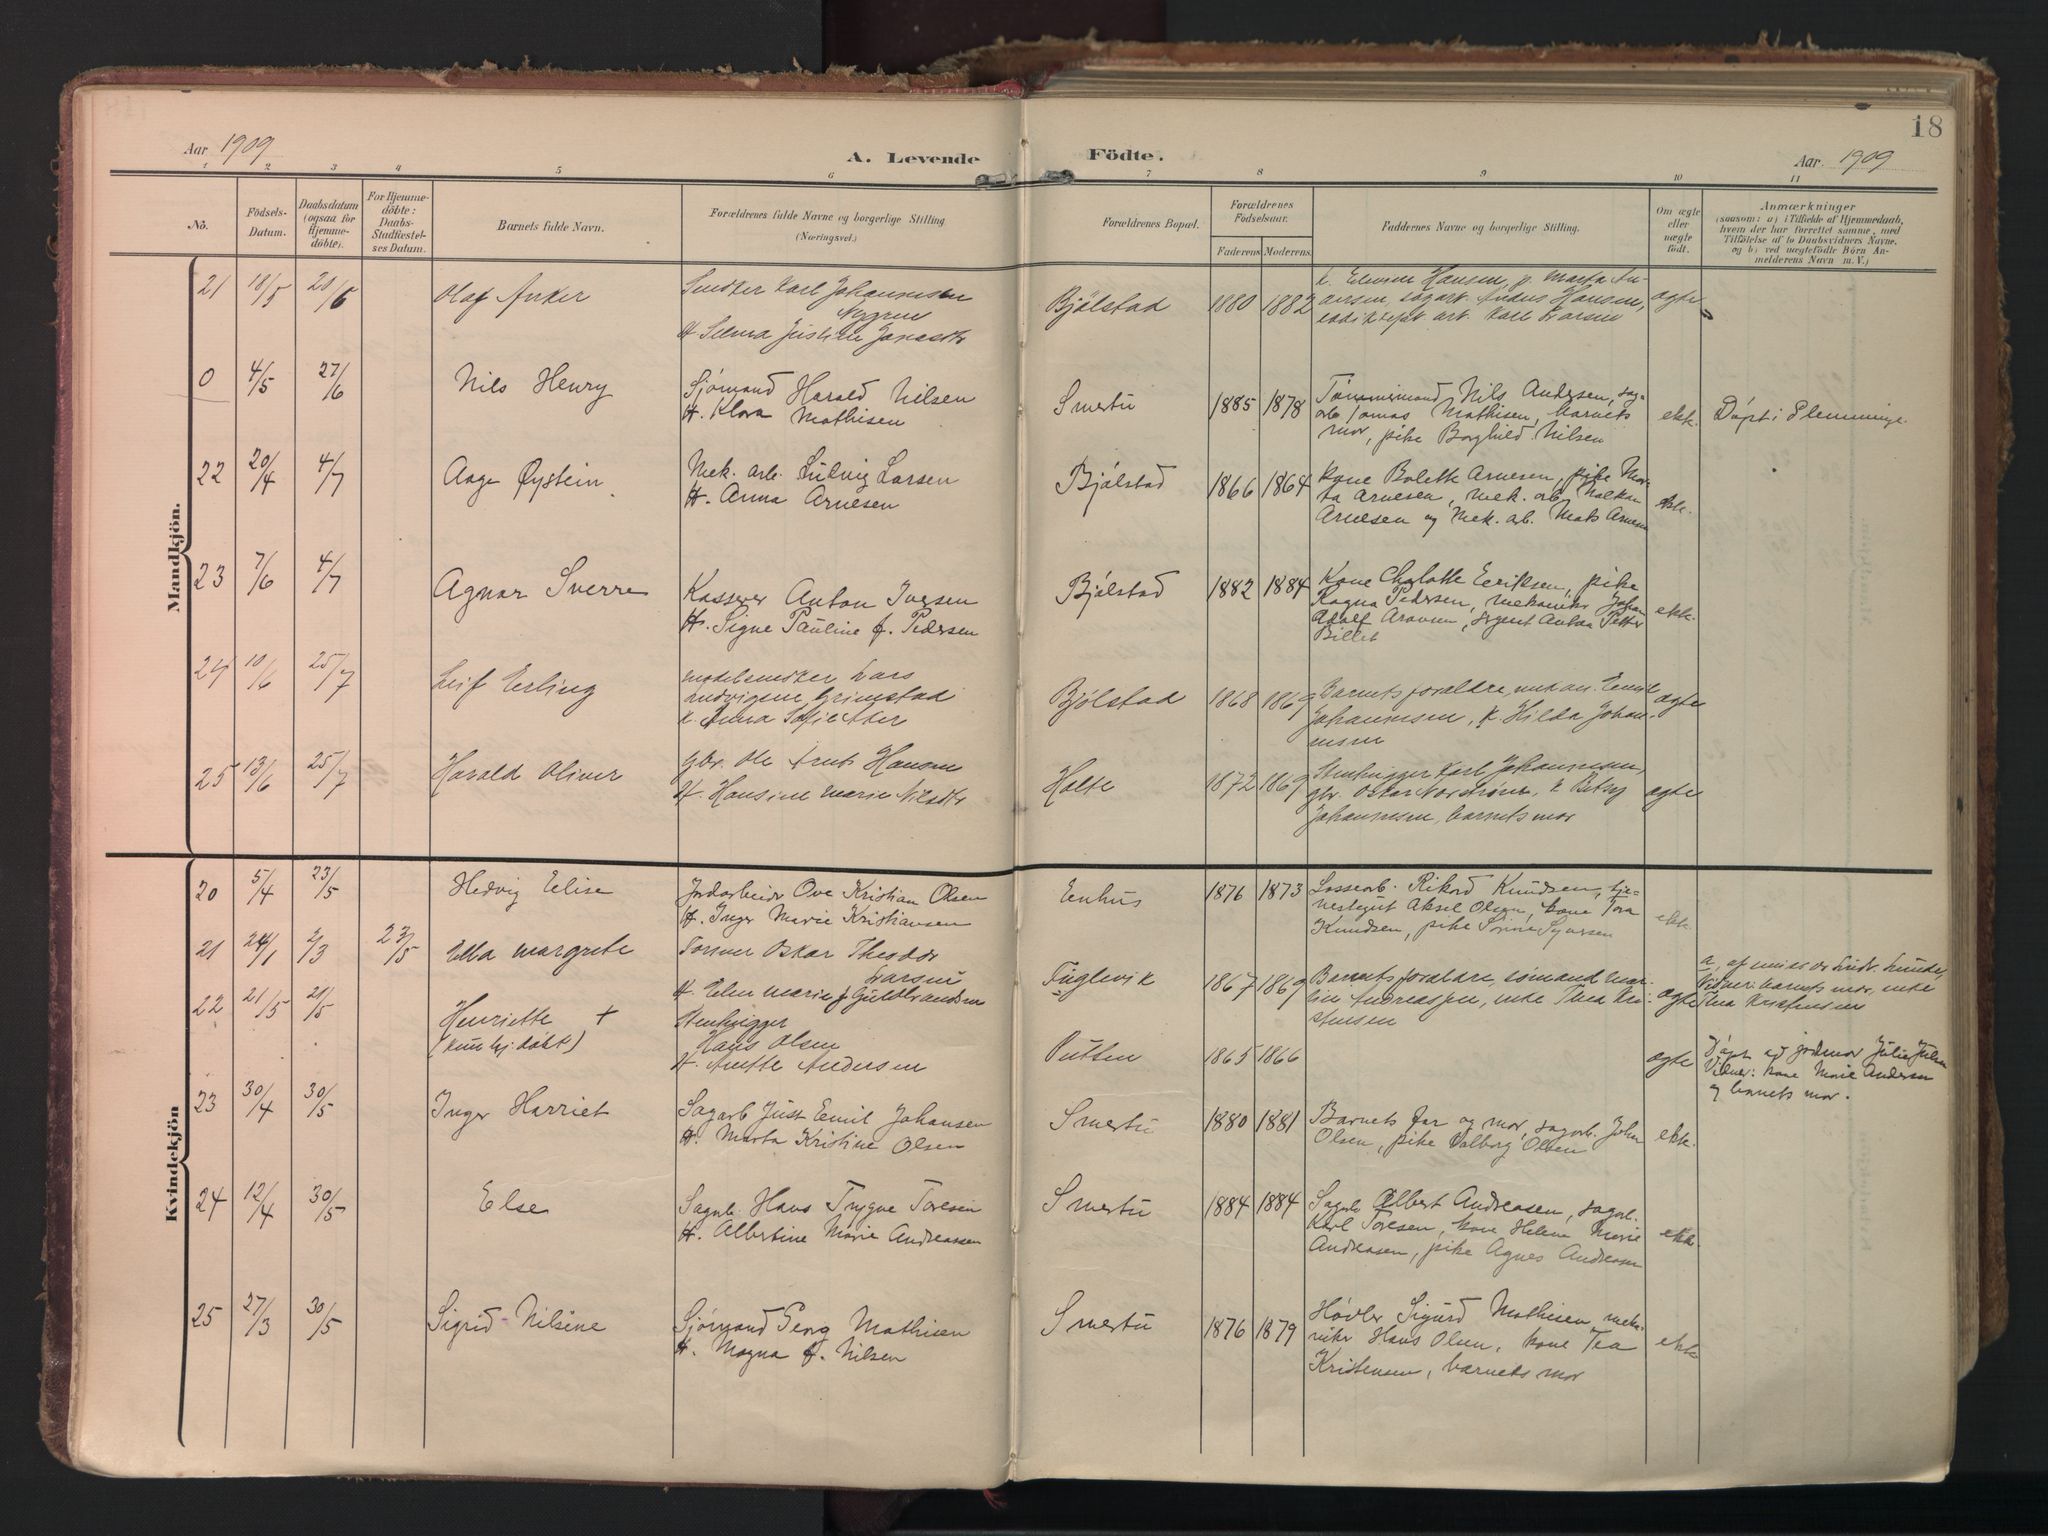 18
Aar 1909
A. Levende Födte.
Aar 1909
1 2 3 4 5 6 7 8 9 10 11
No.
Födsels-Datum.
Daabsdatum (ogsaa for Hjemme-döbte).
For Hjemme-döbte: Daabs-Stadfæstel-ses Datum.
Barnets fulde Navn.
Forældrenes fulde Navne og borgerlige Stilling. (Næringsvei.)
Forældrenes Bopæl.
Forældrenes Födselsaar.
Faderens Moderens
Faddernes Navne og borgerlige Stilling.
Om ægte eller uægte födt.
Anmærkninger
(saasom: a) i Tilfælde af Hjemmedaab, hvem der har forrettet samme, med Tilföielse af to Daabsvidners Navne, og b) ved uægtefödte Börn An-melderens Navn m. V.)
Mandkjön.
21 18/5 20/6 Olaf Anker
Karl Johannesen
Nygren
H. Selma Justine
Bjölstad 1880 1882
k. Hansen, p. Marta
Hansen,
art. Karl Larsen
ægte
0 4/5 27/6 Nils Henry
Sjømand Harald Nilsen
H. Klara Mathisen
Smertu 1885 1878
Nils Andersen, sag-
arb. Tomas Mathisen, barnets
mor, pike Borghild Nilsen
ekte. Döpt i Slemminge.
22 20/4 4/7 Aage Øystein
Mek. arb. Ludvig Larsen
H. Anna Arnesen
Bjölstad 1866 1864
Kone Bolette Arnesen, pike Mar-
ta Arnesen, mek. arb. Halkan
Arnesen og mek. arb. Mats Arnesen
ekte.
23 7/6 4/7 Agnar Sverre
Kasserer Anton Iversen
H. Signe Pauline f. Pedersen
Bjölstad 1882 1884
Kone Charlotte Eriksen, pike
Ragna Pedersen, mekaniker Johan
Adolf Aronsen, Anton Petter
Billet
ekte.
24 10/6 25/7 Leif Erling
modelsnekker Lars
Grimstad
k. Anna Sofie
Bjölstad 1868 1869
Barnets foraldre, Emil
Johannesen, k. Hilda Johan-
nesen
ægte
25 13/6 25/7 Harald Oliver
gbr. Ole Hansen
H. Hansine Marie Nilsdtr
Holte 1872 1869
Stenhugger Karl Johannesen,
gbr. Oskar Nordstrøm, k Betsy
Johannesen, barnets mor
ægte
Kvindekjön
20 5/4 23/5 Hedvig Elise
Jordarbeider Ove Kristian Olsen
H. Inger Marie Kristiansen
Enhus 1876 1873
Rikard Knudsen, tje-
nestegut Aksel Olsen, kone Tora
Knudsen, pike Syversen
ekte.
21 24/1 2/3 23/5 Ella Margrete
Oskar Theodor
Larsen
H. Elen Marie f Guldbrandsen
Fuglevik 1867 1869
Barnets foraldre, sømand Mar-
tin Andreassen, enke Thea Kri-
stensen
ægte
a, af
Vidner: barnets mor, enke
Thea Kristensen
22 21/5 21/5 Henriette +
(kun hj.døbt)
Stenhugger
Hans Olsen
H. Anette Andersen
Putten 1865 1866
ægte
Döpt av jordmor Julie
Vidner: kone Marie Andersen
og barnets mor.
23 30/4 30/5 Inger Harriet
Sagarb Just Emil Johansen
H. Marta Kristine Olsen
Smertu 1880 1881
Barnets far og mor, sagarb. Johan
Olsen, pike Valborg Olsen
ekte.
24 12/4 30/5 Else
Sagarb. Hans Trygve Toresen
H. Albertine Marie Andreassen
Smertu 1884 1884
Sagarb. Albert Andreasen, sagarb.
Karl Toresen, kone Helene Marie
Andreasen, pike Agnes Andreasen
ekte.
25 27/3 30/5 Sigrid Nilsine
Sjømand Georg Mathisen
H. Magna f. Nilsen
Smertu 1876 1879
Høvler Sigurd Mathisen, meka-
niker Hans Olsen, kone Tea
Kristensen, barnets mor
ekte